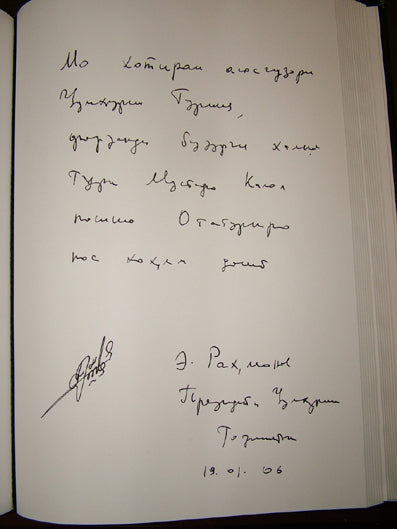 Мо хотираи асосгузори
Ҷумҳурии Туркия,
фарзанди бузурги халқи
Турк Мустафо Камол
пошшо Отатуркро
пос хоҳем дошт
Э. Раҳмонов
Президенти Ҷумҳурии
Тоҷикистон
19.01.06